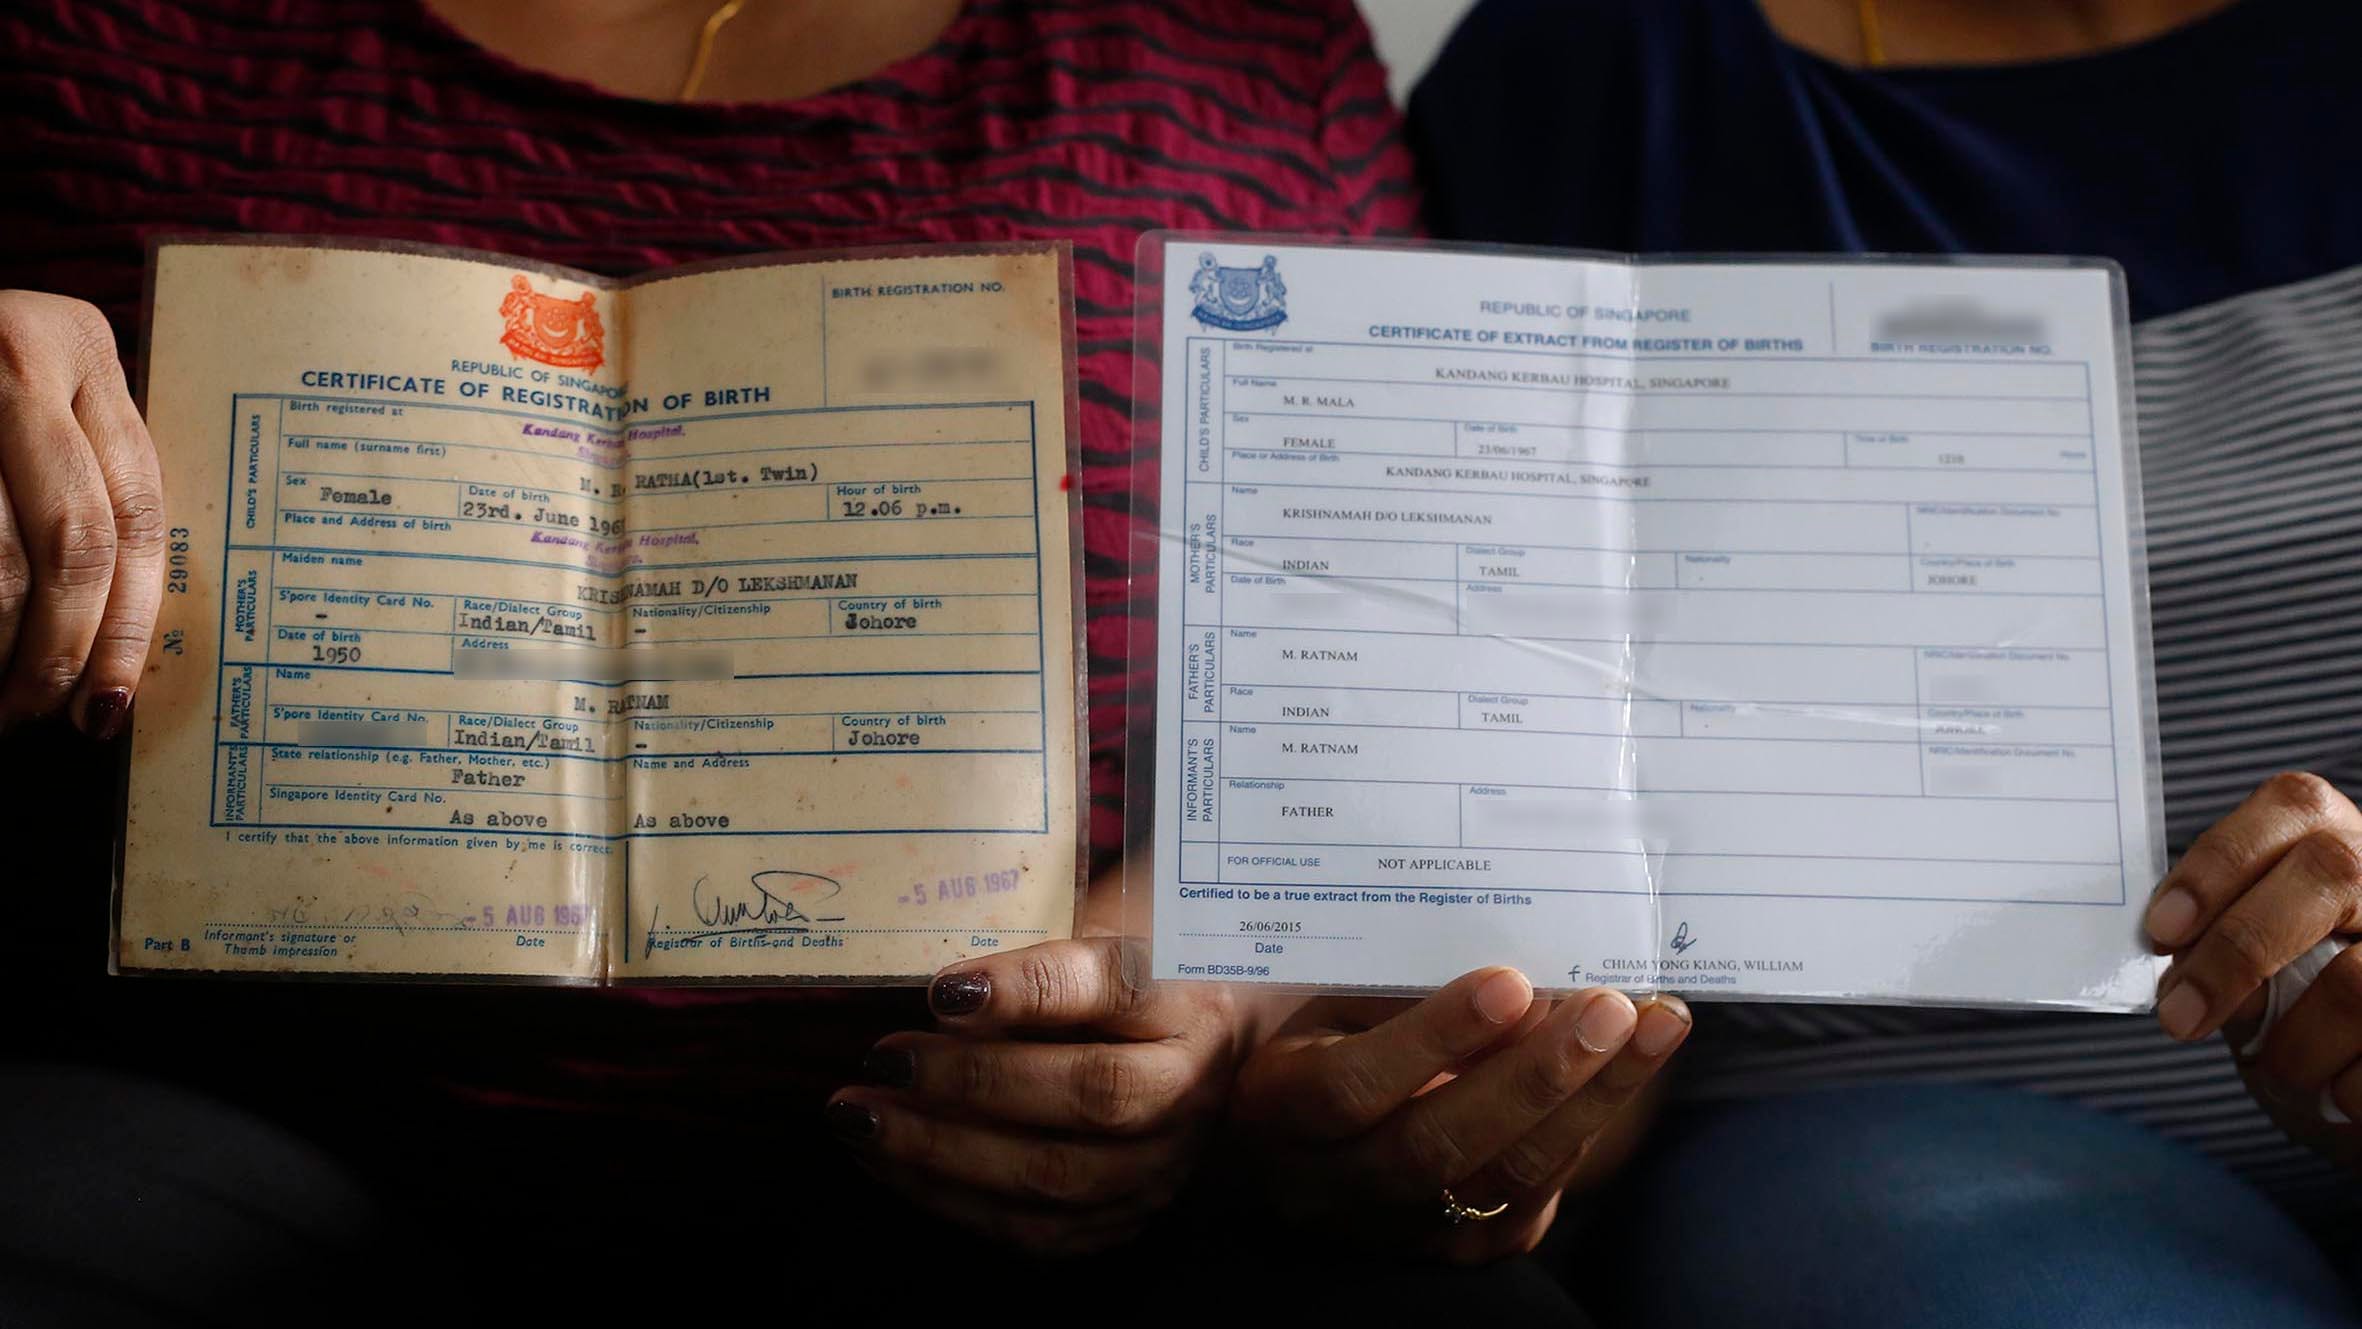 BIRTH REGISTRATION NO.
REPUBLIC OF SINGAPORE
CERTIFICATE OF REGISTRATION OF BIRTH
CHILD'S PARTICULARS
Birth registered at
Kandang Hospital.
Full name (surname first)
M. R. RATHA(1st. Twin)
Sex
Female
Date of birth
23rd. June 196
Hour of birth
12.06 p.m.
Place and Address of birth
Kandang Hospital,
MOTHER'S PARTICULARS
Maiden name
KRISHNAMAH D/O LEKSHMANAN
S'pore Identity Card No.
-
Race/Dialect Group
Indian/Tamil
Nationality/Citizenship
-
Country of birth
Johore
Date of birth
1950
Address
FATHER'S PARTICULARS
Name
M. RATNAM
S'pore Identity Card No.
Race/Dialect Group
Indian/Tamil
Nationality/Citizenship
-
Country of birth
Johore
INFORMANT'S PARTICULARS
State relationship (e.g. Father, Mother, etc.)
Father
Name and Address
Singapore Identity Card No.
As above
As above
I certify that the above information given by me is correct.
-5 AUG 196
-5 AUG 1967
Part B
Informant's signature or
Thumb impression
Date
Registrar of Births and Deaths
Date
No 29083
REPUBLIC OF SINGAPORE
CERTIFICATE OF EXTRACT FROM REGISTER OF BIRTHS
BIRTH REGISTRATION NO.
CHILD'S PARTICULARS
Birth Registered at
KANDANG KERBAU HOSPITAL, SINGAPORE
Full Name
M. R. MALA
Sex
FEMALE
Date of Birth
23/06/1967
Time of Birth
1210
Hours
Place or Address of Birth
KANDANG KERBAU HOSPITAL, SINGAPORE
MOTHER'S PARTICULARS
Name
KRISHNAMAH D/O LEKSHMANAN
NRIC/Identification Document No.
Race
INDIAN
Dialect Group
TAMIL
Nationality
Country/Place of Birth
JOHORE
Date of Birth
Address
FATHER'S PARTICULARS
Name
M. RATNAM
NRIC/Identification Document No.
Race
INDIAN
Dialect Group
TAMIL
Nationality
Country/Place of Birth
JOHORE
INFORMANT'S PARTICULARS
Name
M. RATNAM
NRIC/Identification Document No.
Relationship
FATHER
Address
FOR OFFICIAL USE
NOT APPLICABLE
Certified to be a true extract from the Register of Births
26/06/2015
Date
CHIAM YONG KIANG, WILLIAM
Registrar of Births and Deaths
Form BD35B-9/96